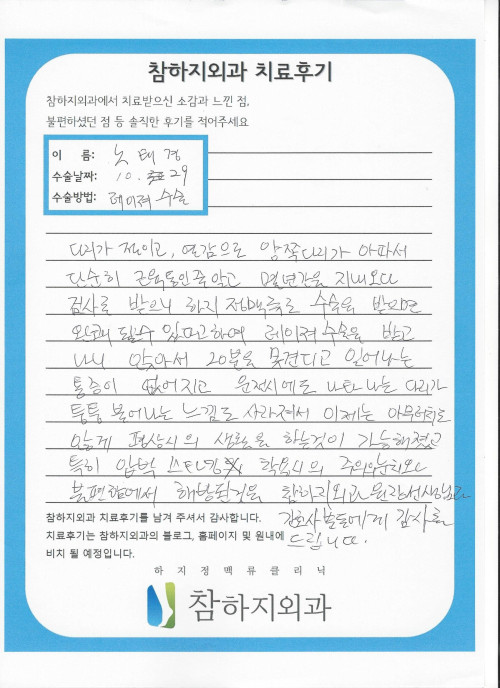 참하지외과 치료후기
참하지외과에서 치료받으신 소감과 느낀 점,
불편하셨던 점 등 솔직한 후기를 적어주세요
이 름: 노태경
수술날짜: 10. 29
수술방법: 레이져 수술
다리가 저리고, 양쪽다리가 아파서
단순히 근육통인줄 알고 몇년간을 지내오다
검사를 받으니 하지 정맥류로 수술을 받으면
완쾌 될수 있다고하여 레이져 수술을 받고
나니 앉아서 20분을 못견디고 일어나는
통증이 없어지고 운전시에도 나타나는 다리가
퉁퉁 붓어나는 느낌도 사라져서 이제는 아무렇지도
않게 평상시의 생활을 하는것이 가능해졌고
특히 압박 스타킹 착용시의
불편함에서 해방된것을 참하지외과 원장선생님과
간호사분들에게 감사를
드립니다.
참하지외과 치료후기를 남겨 주셔서 감사합니다.
치료후기는 참하지외과의 블로그, 홈페이지 및 원내에
비치 될 예정입니다.
하지정맥류클리닉
참하지외과